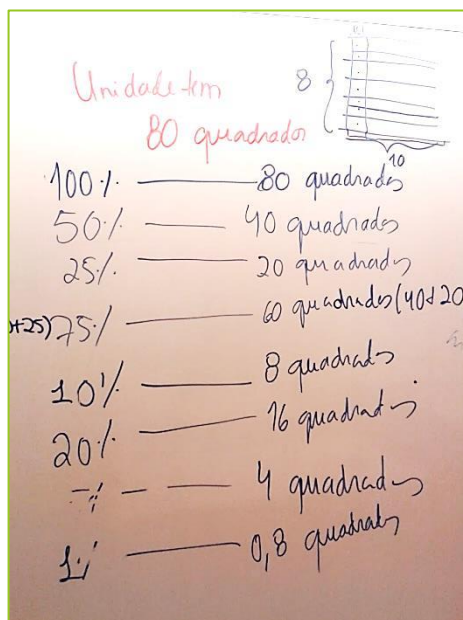 Unidade tem
80 quadrados
8
10
100% — 80 quadrados
50% — 40 quadrados
25% — 20 quadrados
+25) 75% — 60 quadrados (40+20
10% — 8 quadrados
20% — 16 quadrados
— 4 quadrados
1% — 0,8 quadrados